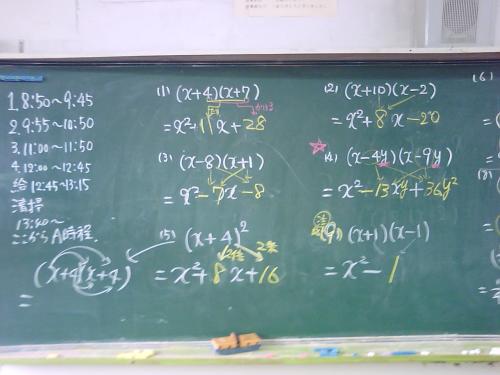 1. 8:50～9:45
2. 9:55～10:50
3. 11:00～11:50
4. 12:00～12:45
給 12:45～13:15
清掃
13:40～
ここからA時程
(1) (x+4)(x+7)
= x²+11x+28
(2) (x+10)(x-2)
= x²+8x-20
(3) (x-8)(x+1)
= x²-7x-8
(4) (x-4y)(x-9y)
= x²-13xy+36y²
(5) (x+4)²
2倍 2乗
= x²+8x+16
(x+4)(x+4)
=
(9) (x+1)(x-1)
= x²-1
(6)